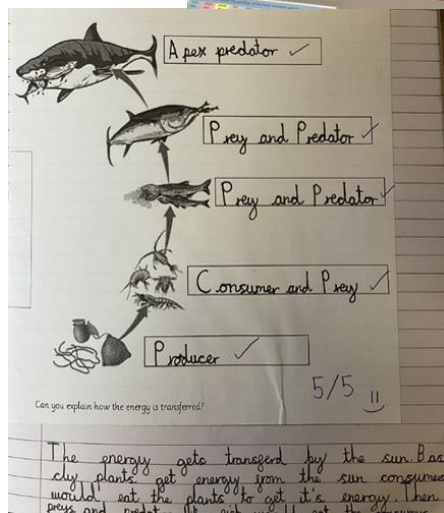 Apex predator
Prey and Predator
Prey and Predator
Consumer and Prey
Producer
5/5
Can you explain how the energy is transferred?
The energy gets transferd by the sun. Bas
cly plants get energy from the sun consumes
would eat the plants to get it's energy. Then
preys and